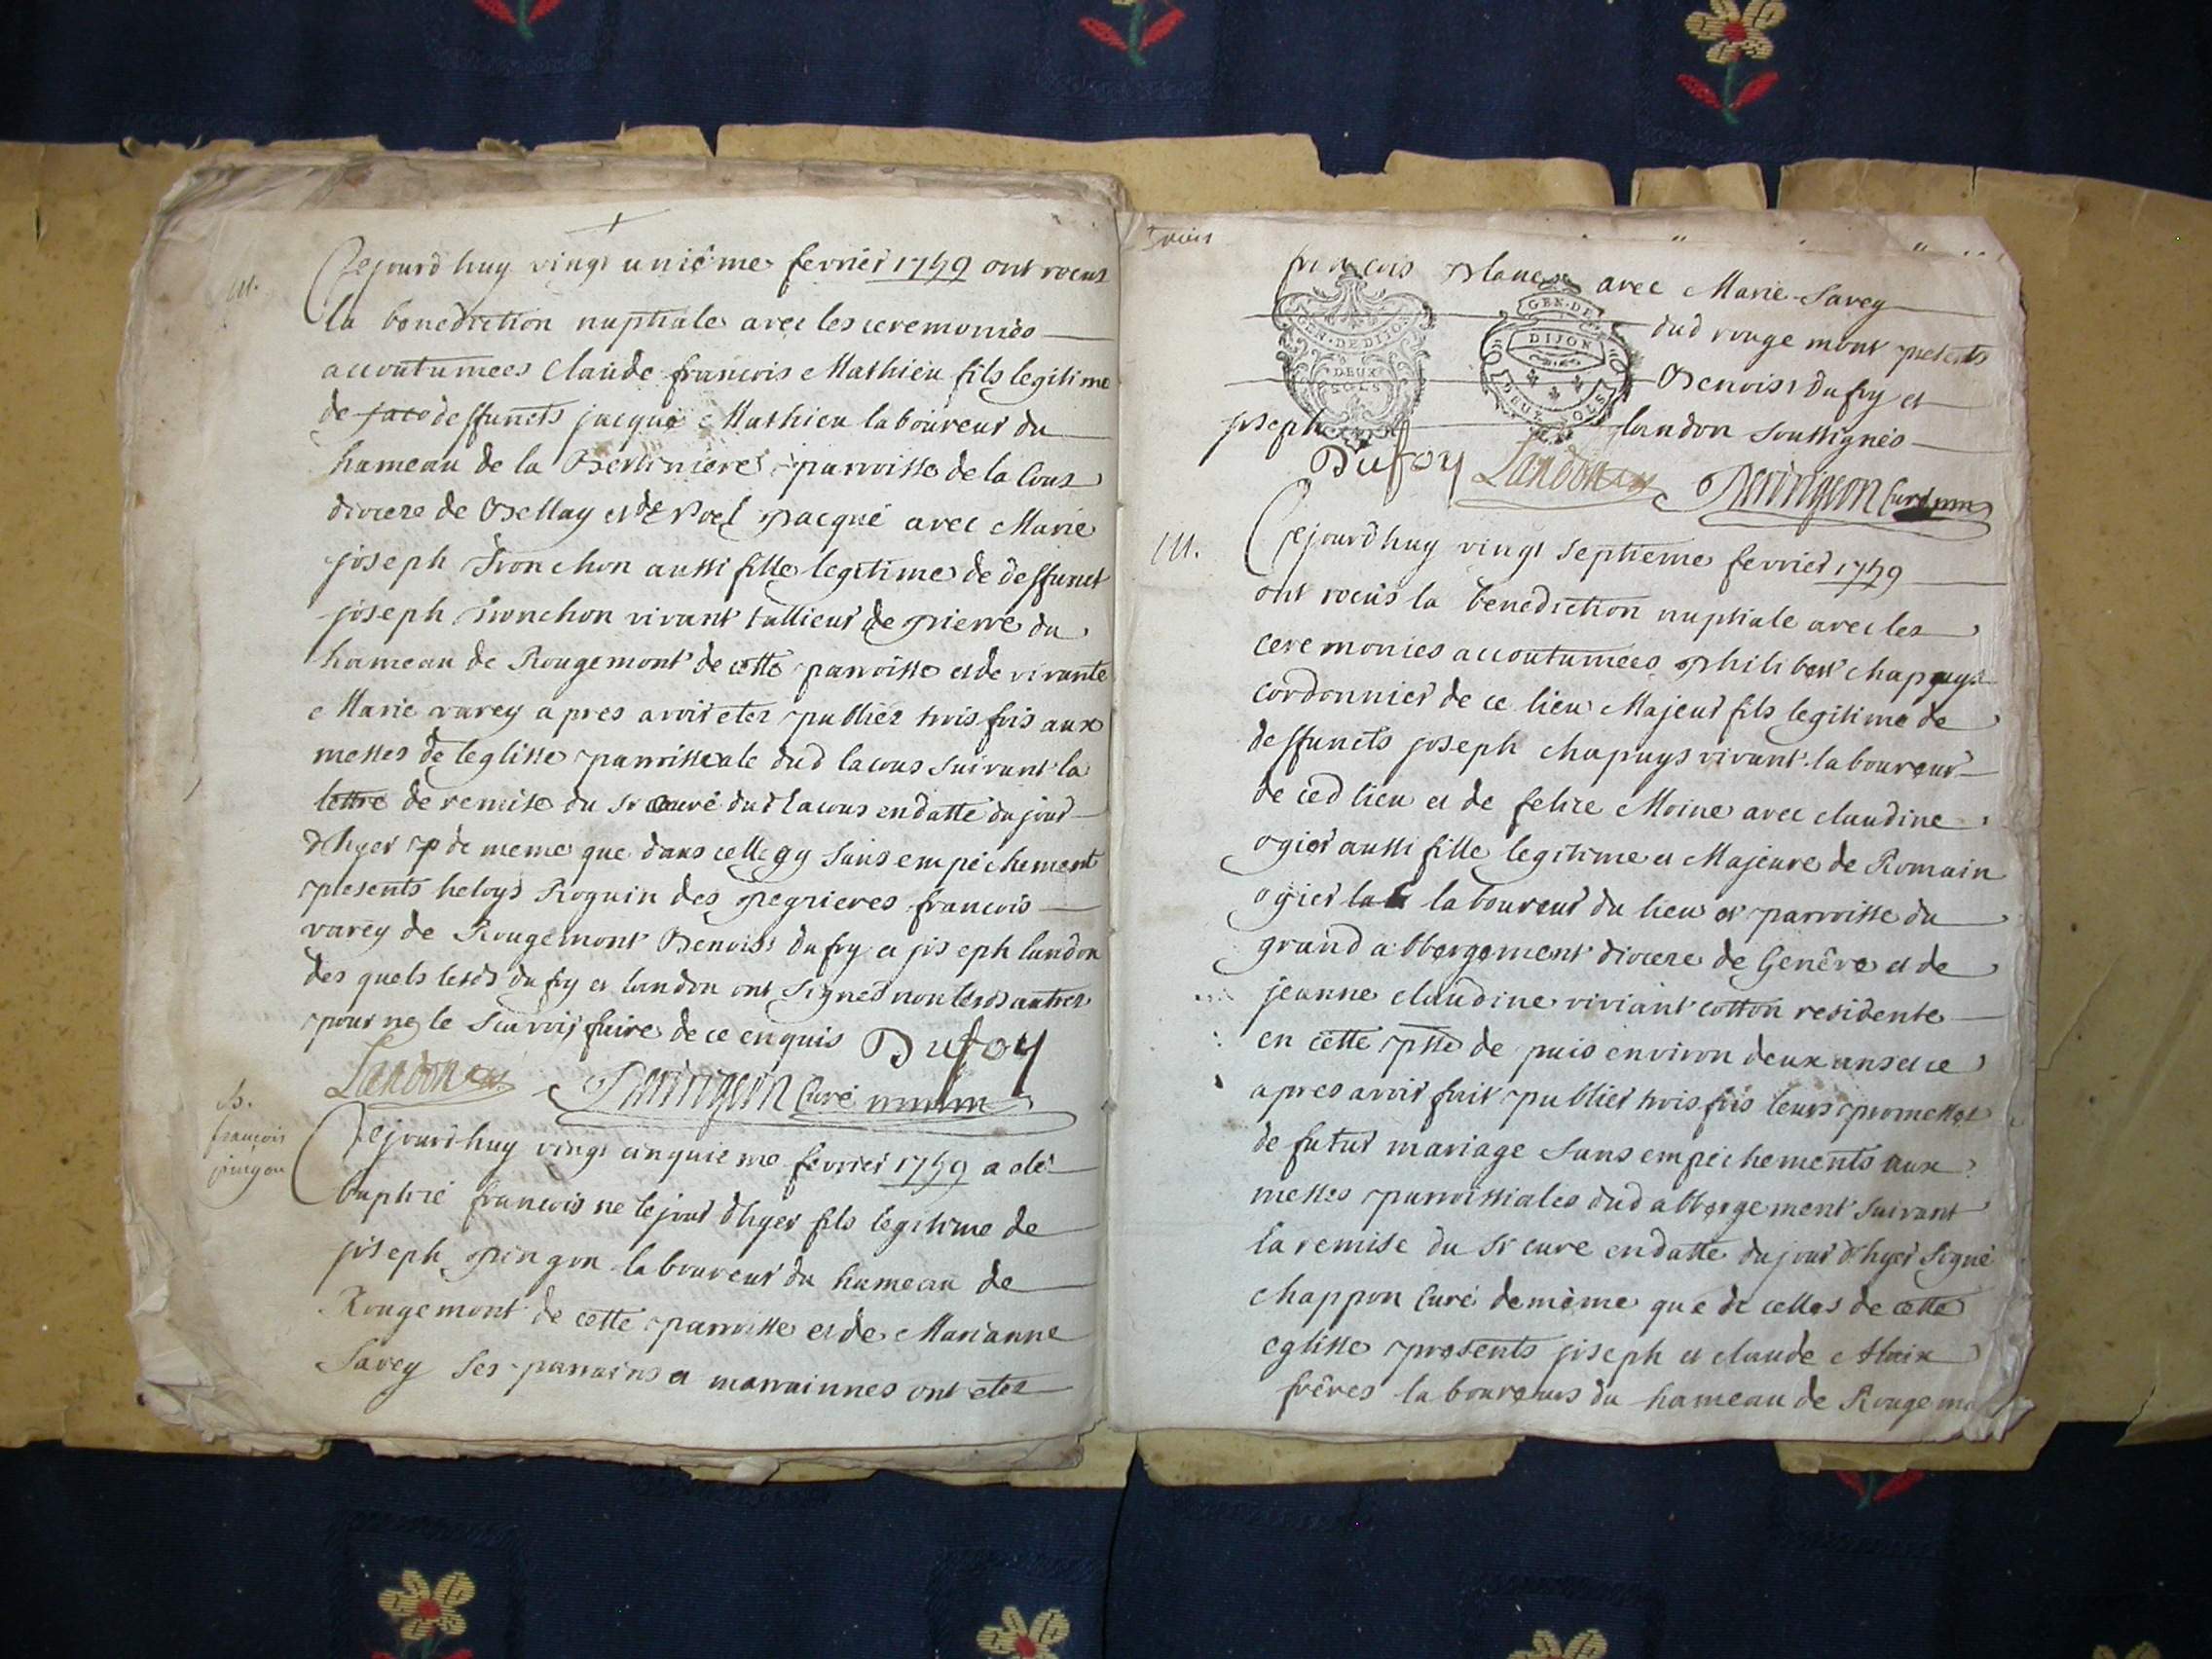 m.
Cejourd huy vingt unième fevrier 1759 ont recus
la benediction nuptiale avec les ceremonies
accoutumees Claude francois Mathieu fils legitime
de jaco deffuncts jacque Mathieu laboureur du
hameau de la parroisse de la Cous
diocese de Bellay et de avec Marie
joseph Tronchon aussi fille legitime de deffunct
joseph Tronchon vivant tallieur de pierre du
hameau de Rougemont de cette parroisse et de vivante
Marie varey apres avoir etez publiez trois fois aux
messes de leglisse parroissiale dud lacous suivant la
lettre de remise du sr curé dud lacous en datte du jour
dhyer de meme que dans celle cy sans empechement
presents heloys Roguin des francois
varey de Rougemont Benoist dufoy et joseph landon
des quels lesds dufoy et landon ont signés non lesds autres
pour ne le scavoir faire de ce enquis Dufoy
Landon Curé
b.
françois
pingon
Cejourd huy vingt cinquieme fevrier 1759 a eté
baptizé francois ne lejour dhyer fils legitime de
joseph pingon laboureur du hameau de
Rougemont de cette parroisse et de Marianne
Savey ses parrains et marrainnes ont etez
francois avec Marie Savey
GEN. DE DIJON
DEUX
SOLS
GEN. DE
DIJON
DEUX SOLS
dud rougemont presents
Benoist dufoy et
joseph landon soussignés
Dufoy Landon Curé
m.
Cejourd huy vingt septieme fevrier 1759
ont recûs la benediction nuptiale avec les
ceremonies accoutumees philibert chapuys
cordonnier de ce lieu Majeur fils legitime de
deffuncts joseph chapuys vivant laboureur
de ced lieu et de felize Moine avec claudine
ogier aussi fille legitime et Majeure de Romain
ogier lab laboureur du lieu et parroisse du
grand abbergement diocese de Genêve et de
jeanne claudine viviant cotton residente
en cette psse de puis environ deux ans et ce
apres avoir fait publier trois fois leurs promesses
de futur mariage sans empechements aux
messes parroissiales dud abbergement suivant
la remise du sr cure en datte du jour d'hyer signé
chappon Curé de même que de celles de cette
eglisse presents joseph et claude Alaix
frêres laboureurs du hameau de Rougemo